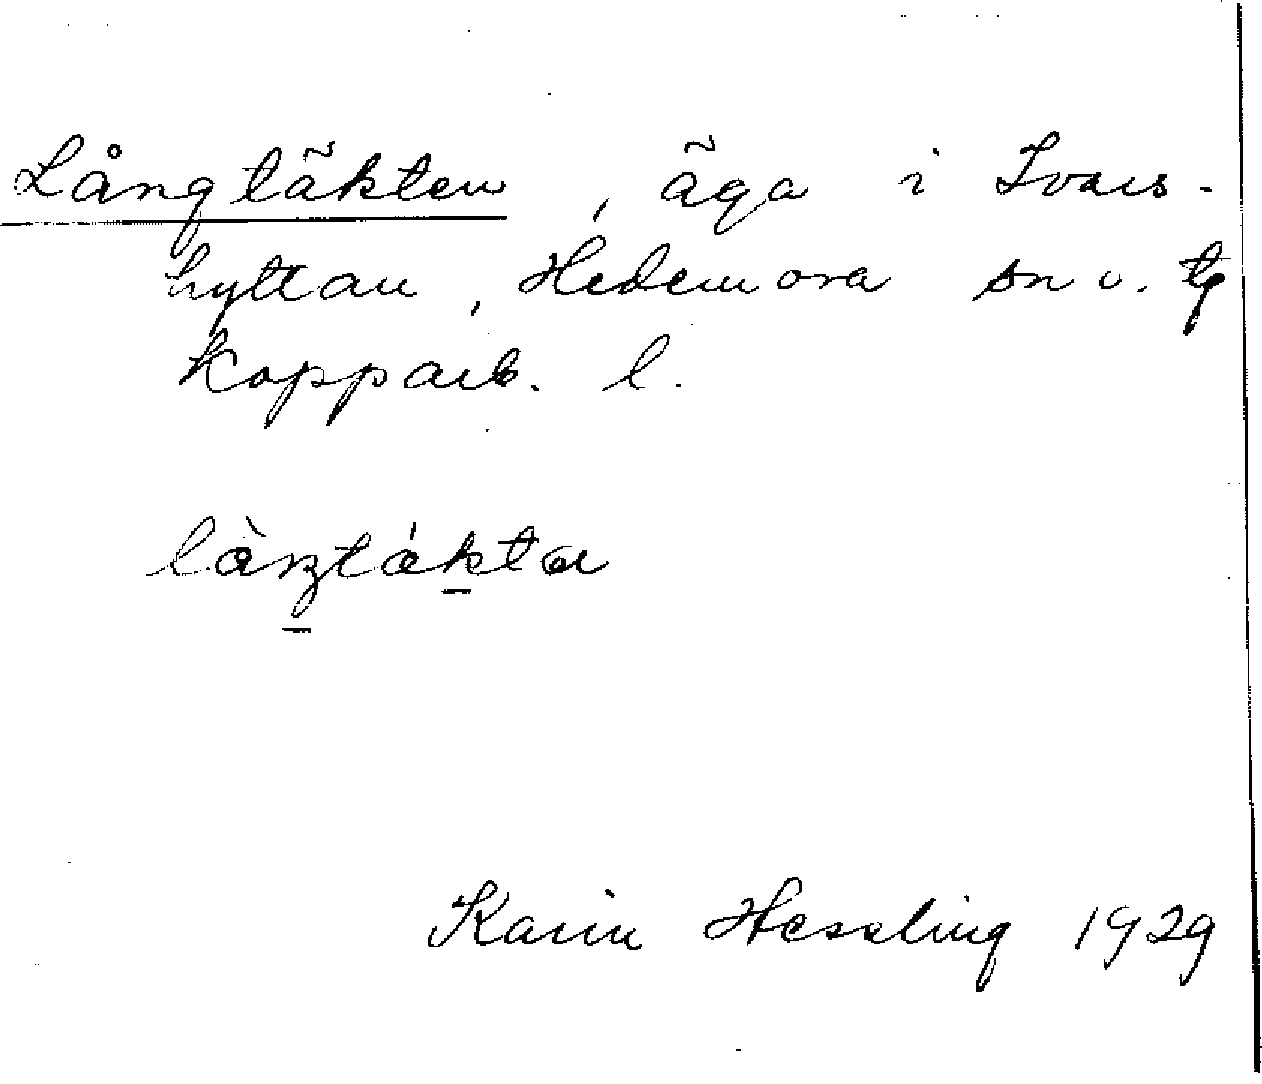 Långtäkten, äga i Ivars-
hyttan, Hedemora sn o. tg
Kopparb. l.
làŋtáktɑ
Karin Hessling 1929